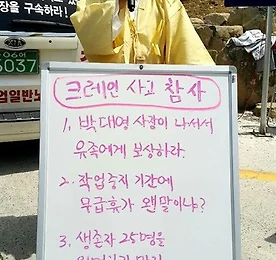 장을 구속하라!
6037
크레인 사고 참사
1, 박대영 사장이 나서서
유족에게 보상하라.
2. 작업중지 기간에
무급휴가 왠말이냐?
3. 생존자 25명을